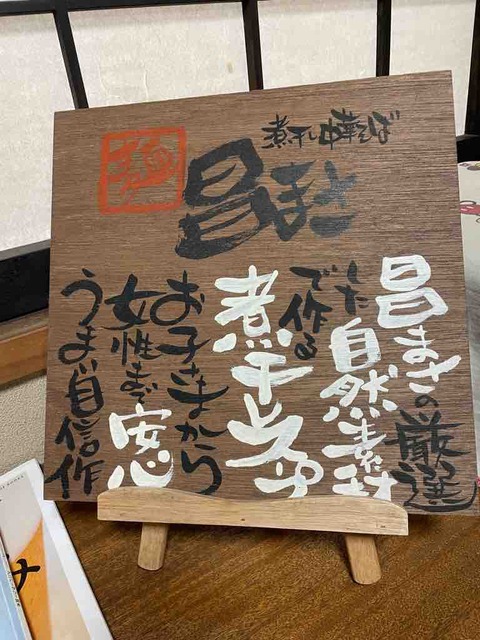 煮干し中華そば
昌まさ
昌まさの厳選
した自然素材
で作る
煮干しスープ
お子さまから
女性まで安心
うま自信作